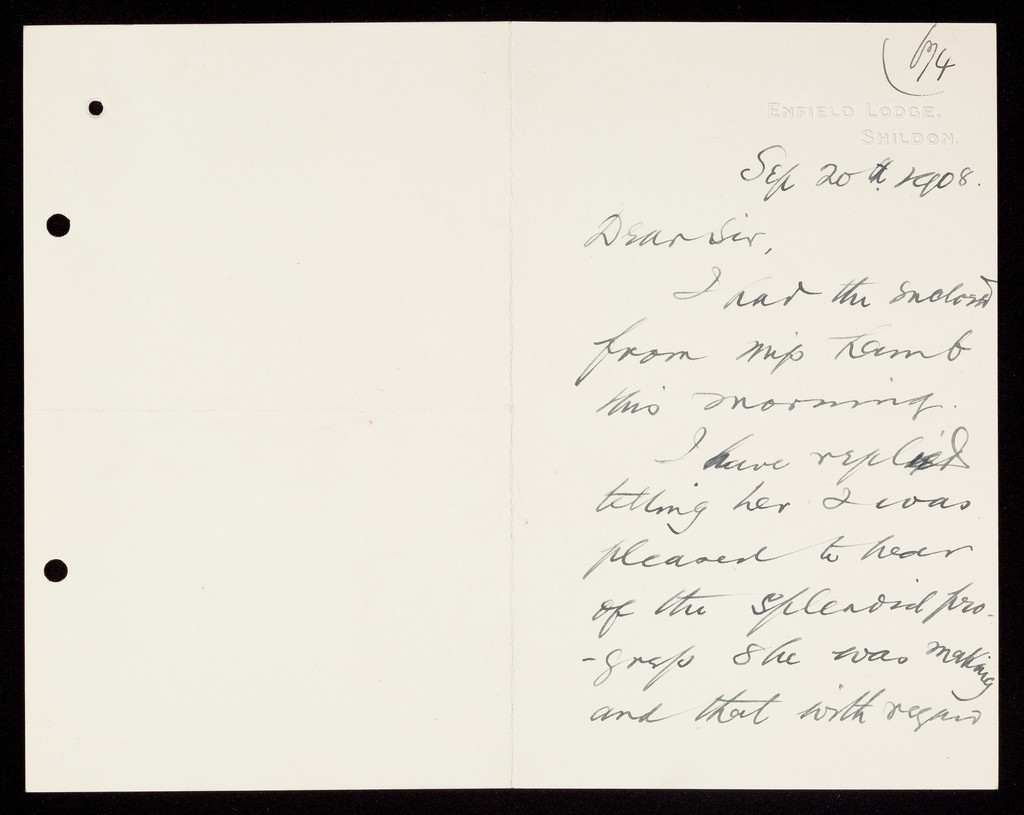 674
ENFIELD LODGE,
SHILDON.
Sep 20th. 1908.
Dear Sir,
I had the enclosed
from Miss Lamb
this morning.
I have replied
telling her I was
pleased to hear
of the splendid pro-
-gress she was making
and that with regard